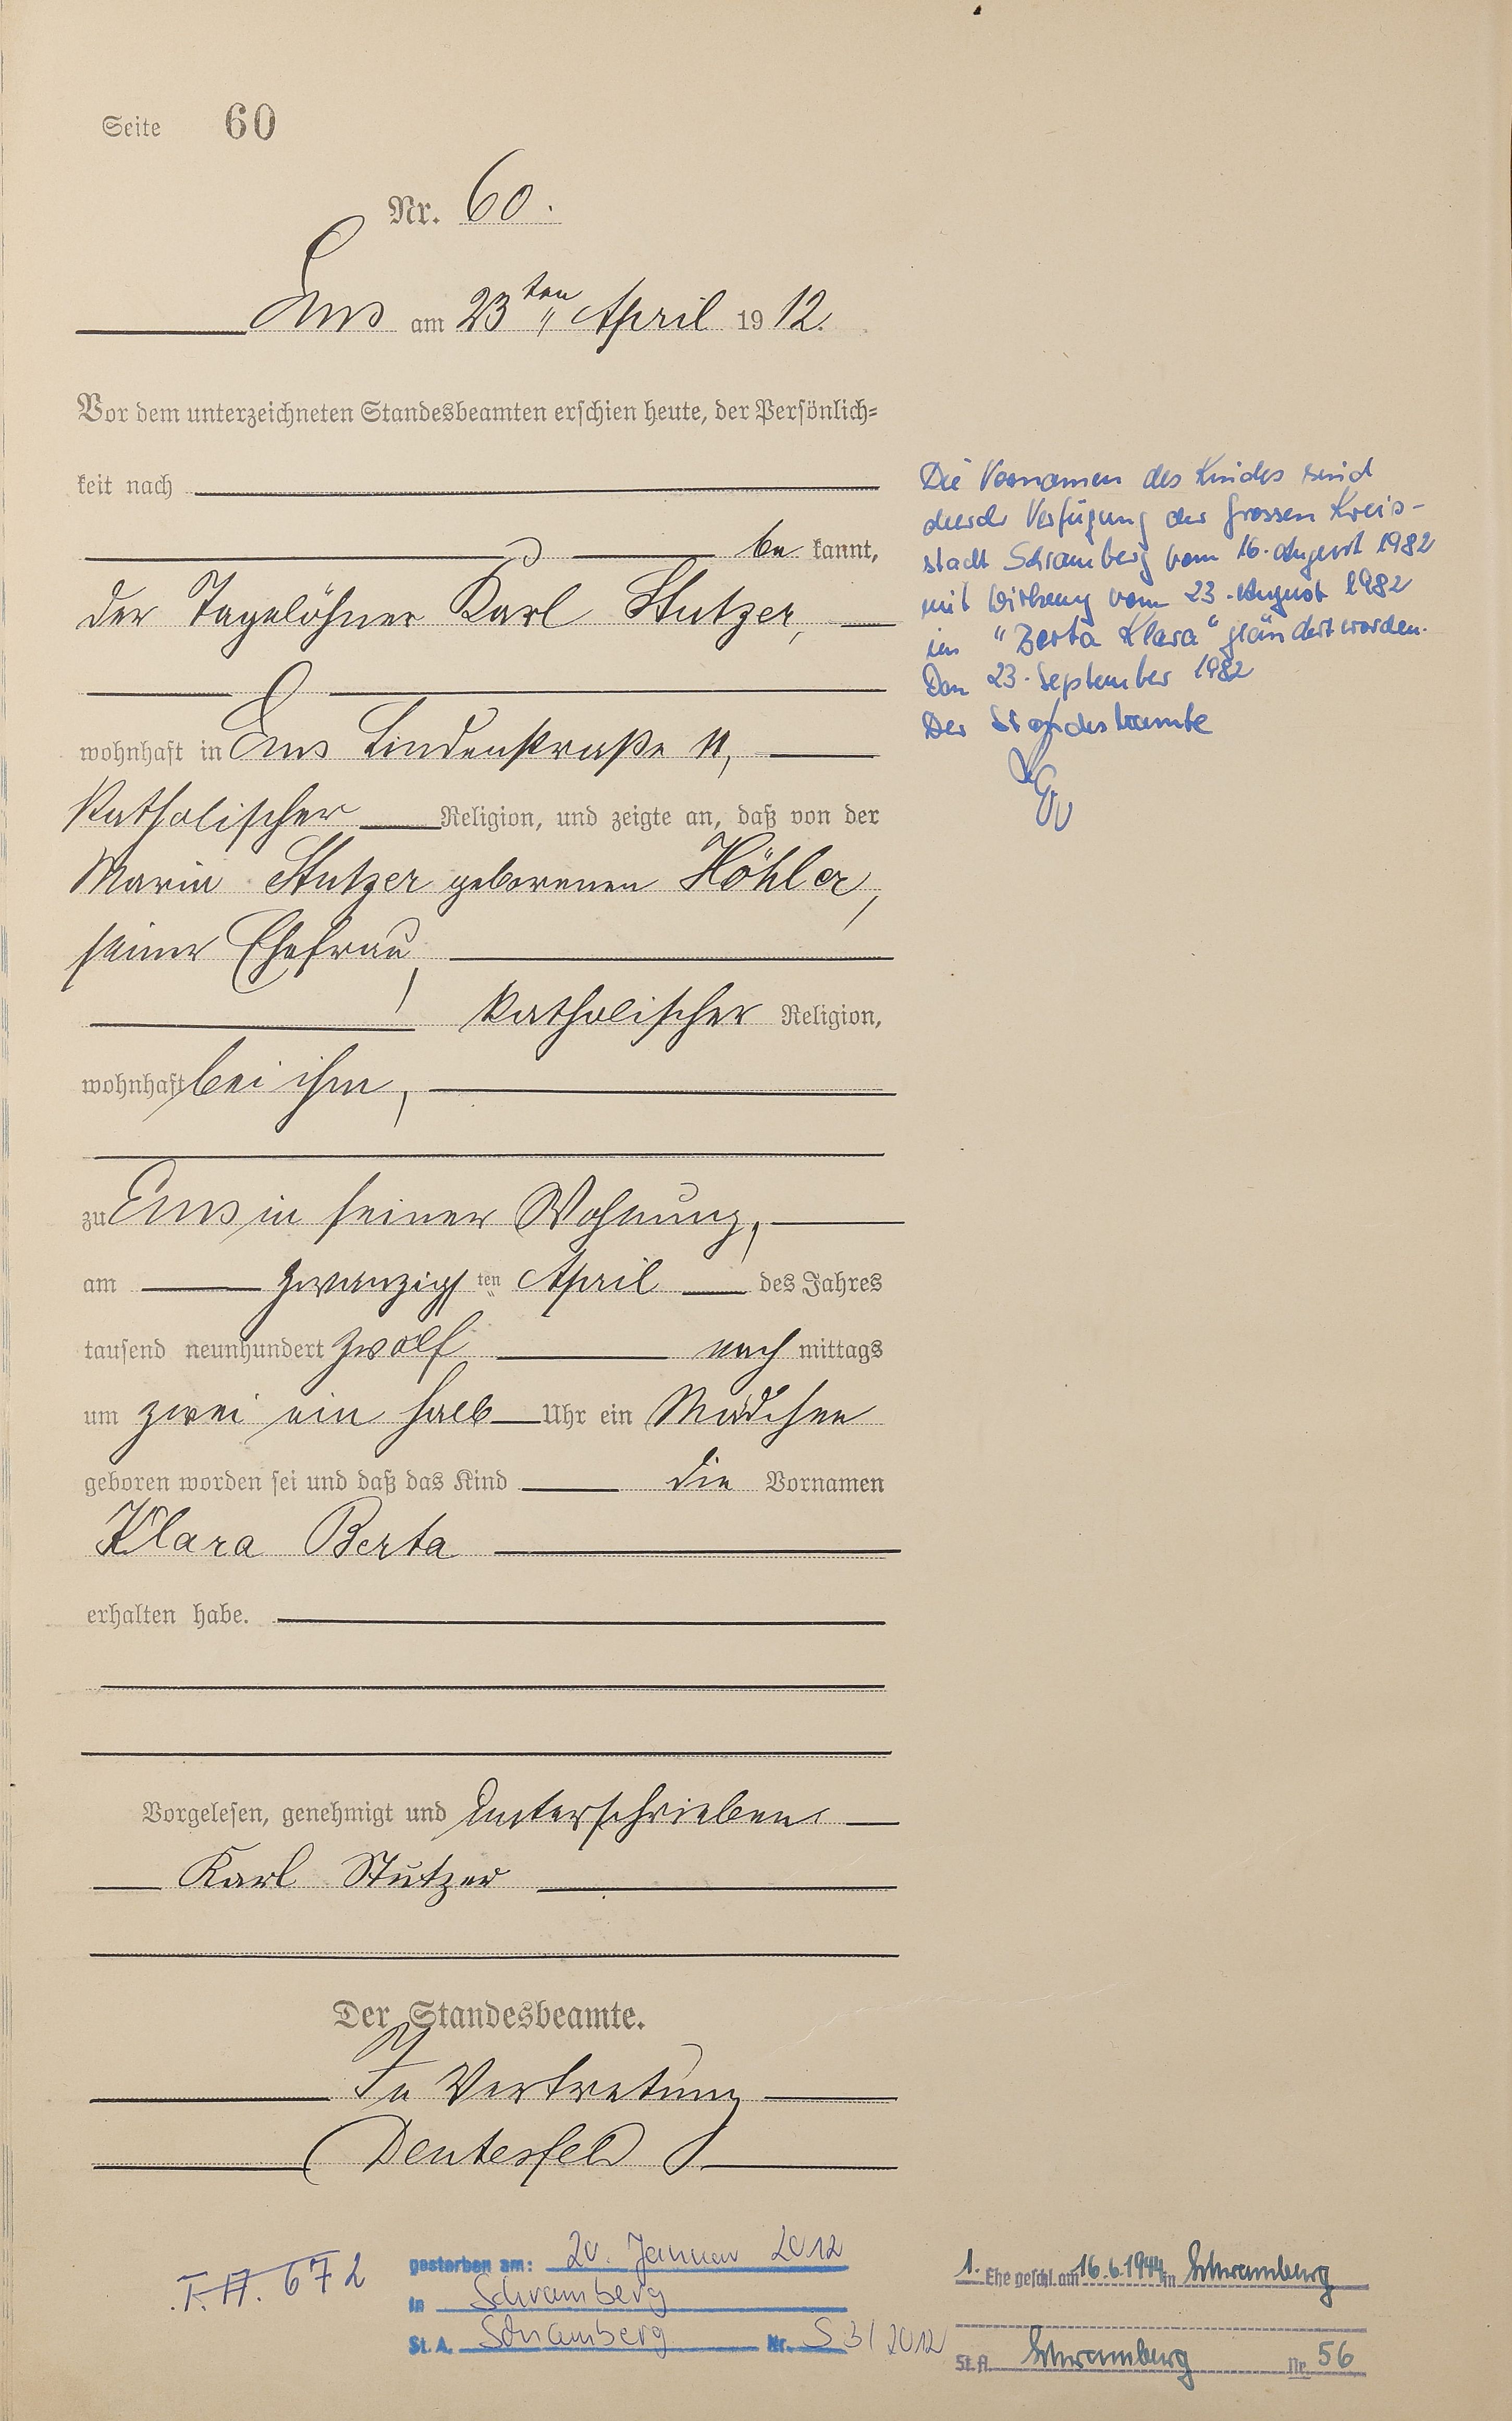 Seite 60
Nr. 60.
Ems am 23ten April 1912.
Vor dem unterzeichneten Standesbeamten erschien heute, der Persönlich-
keit nach
be kannt,
der Tagelöhner Karl Stutzer,
wohnhaft in Ems Lindenstraße 11,
katholischer Religion, und zeigte an, daß von der
Maria Stutzer geborenen Höhler,
seiner Ehefrau,
katholischer Religion,
wohnhaft bei ihm,
zu Ems in seiner Wohnung,
am zwanzigsten April des Jahres
tausend neunhundert zwölf nach mittags
um zwei ein halb Uhr ein Mädchen
geboren worden sei und daß das Kind die Vornamen
Klara Berta
erhalten habe.
Vorgelesen, genehmigt und unterschrieben
Karl Stutzer
Der Standesbeamte.
In Vertretung
Deutesfeld
Die Vornamen des Kindes sind
durch Verfügung der Grossen Kreis-
stadt Schramberg vom 16. August 1982
mit Wirkung vom 23. August 1982
in "Berta Klara" geändert worden.
Den 23. September 1982
Der Standesbeamte
T.A. 672
gestorben am: 20. Januar 2012
in Schramberg
St. A. Schramberg Nr. S 3/2012
1. Ehe geschl. am 16.6.1944 in Schramberg
St. A. Schramberg Nr. 56